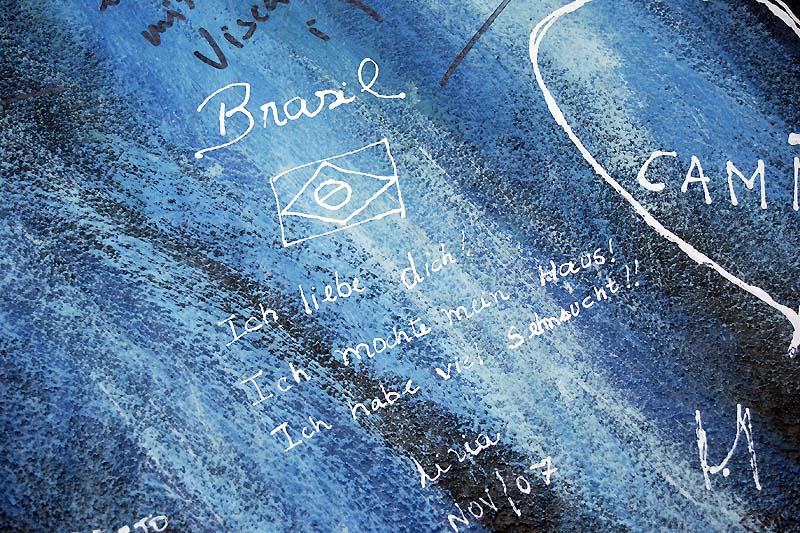 Visca
i
Brasil
CAMI
Ich liebe dich!
Ich mochte mein Haus!
Ich habe viel Sehnsucht!!
NOV/07
M